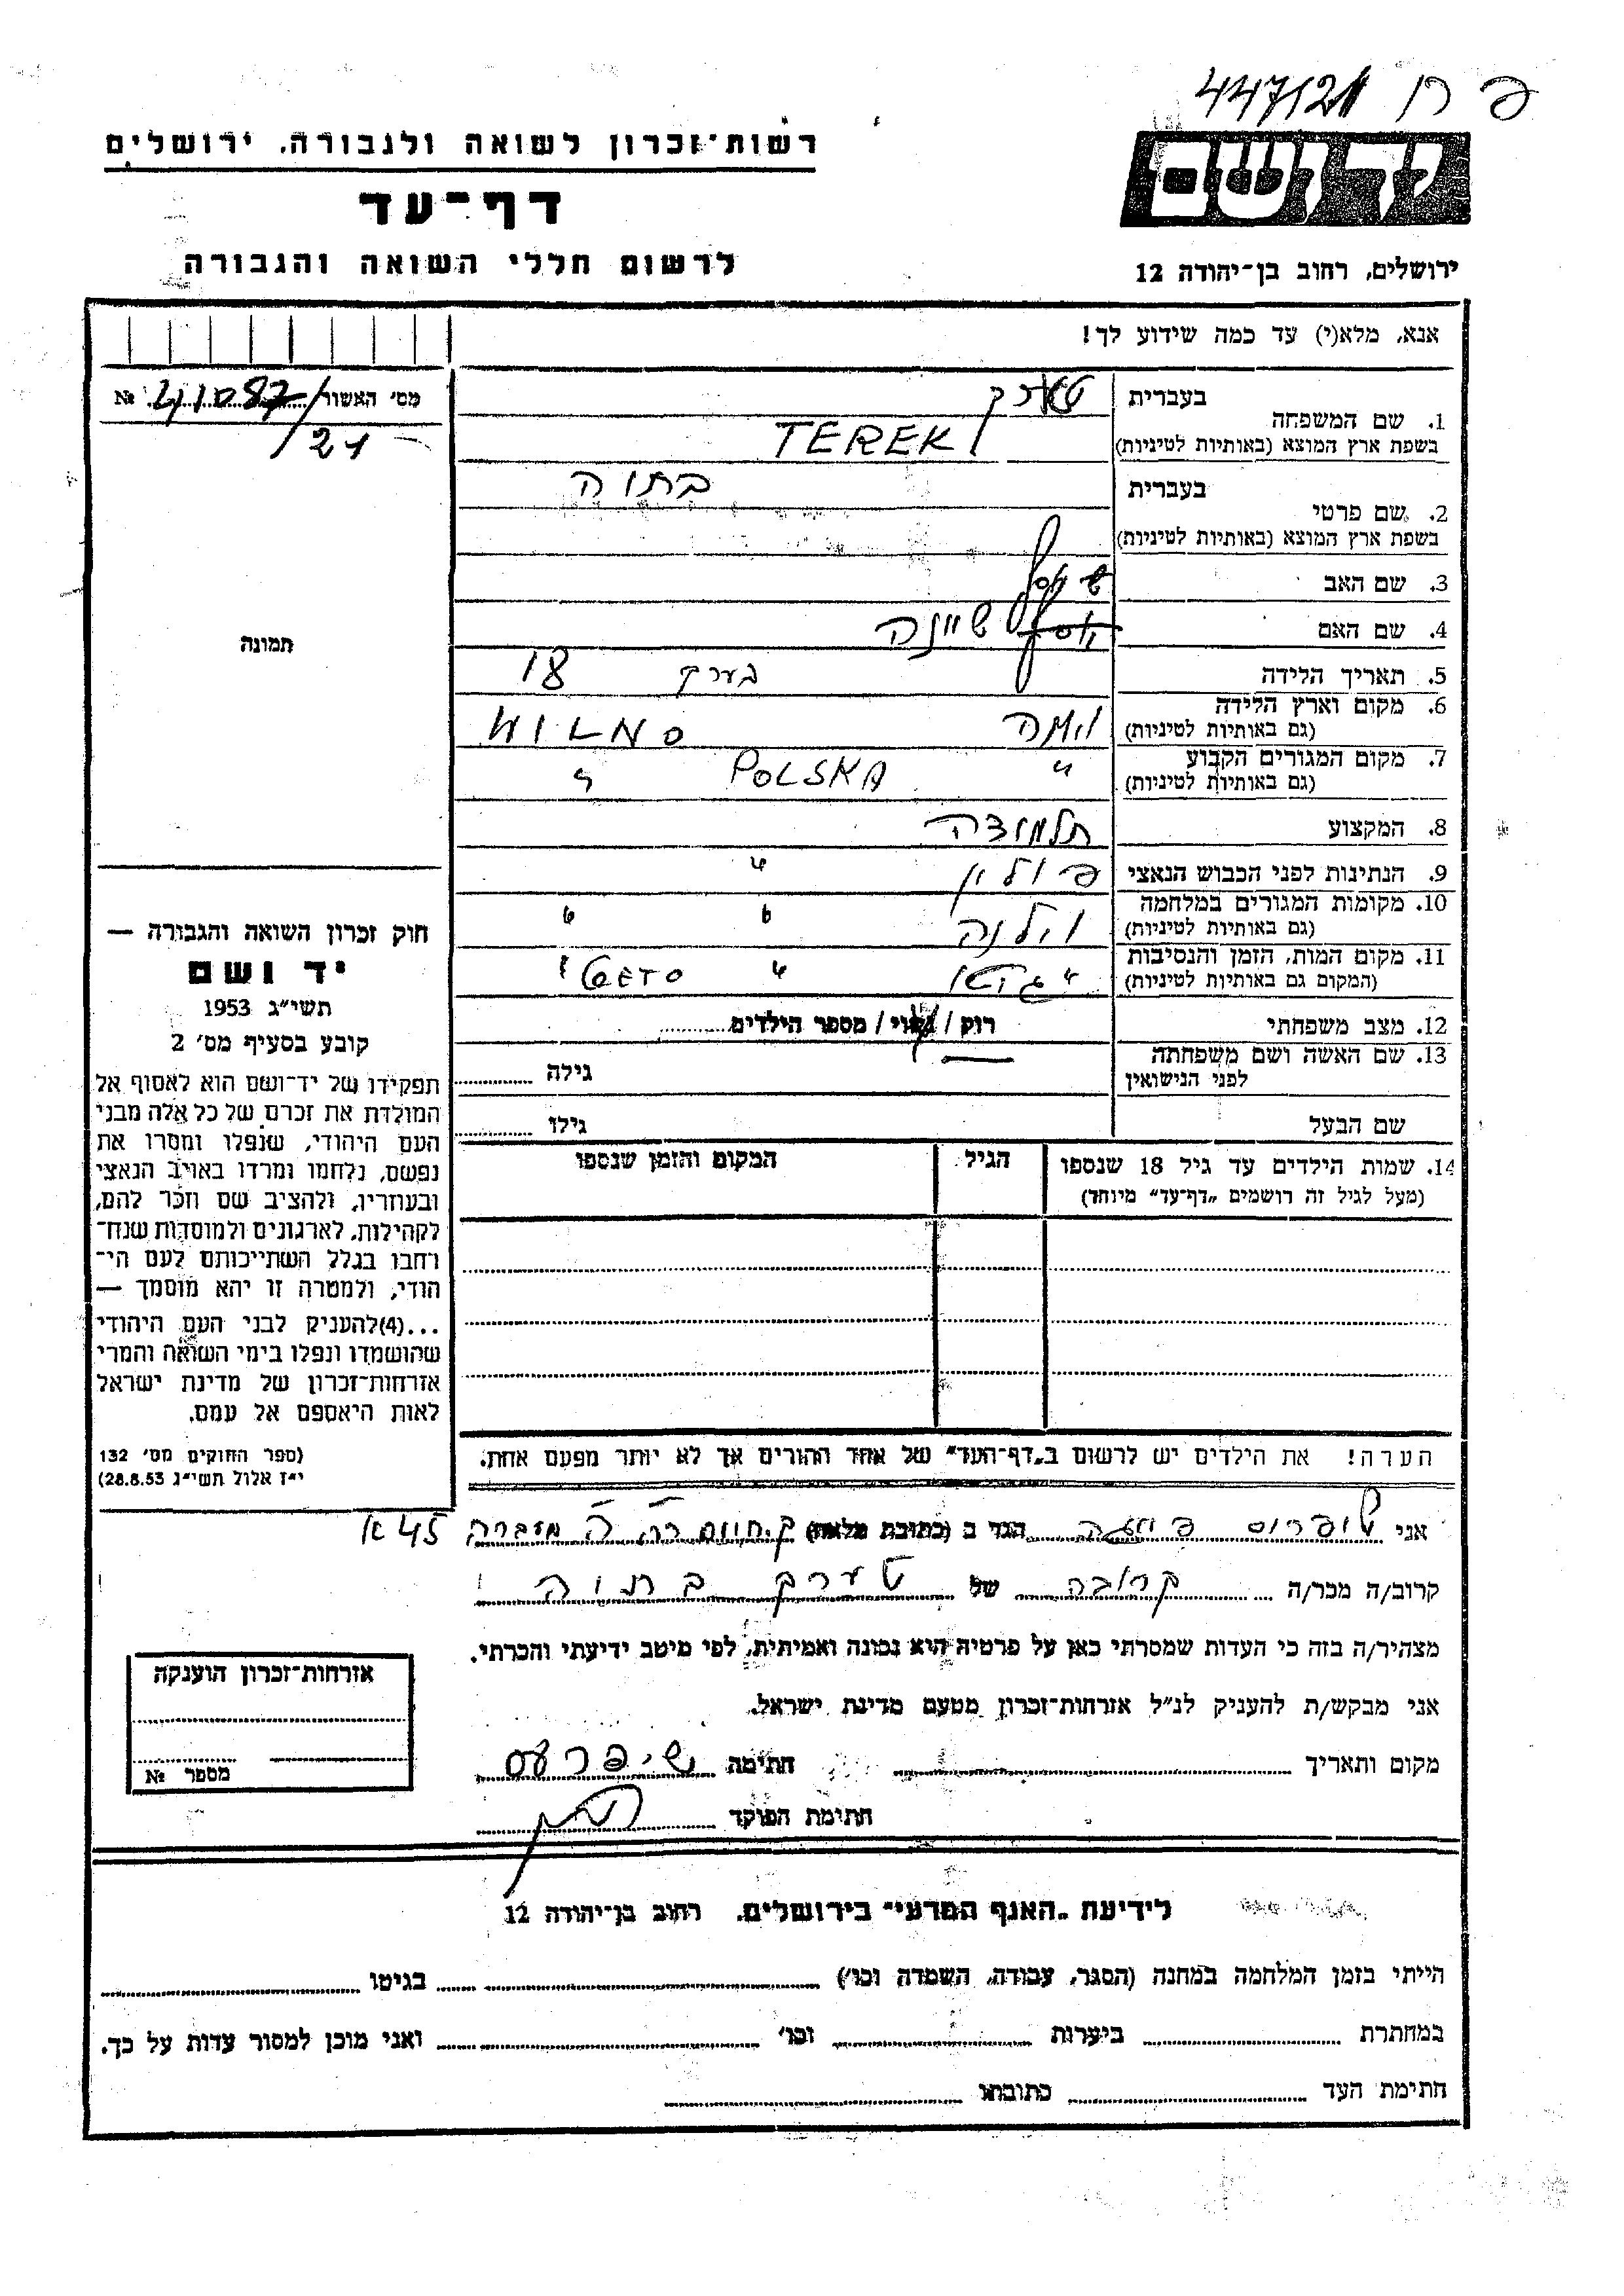 פ ח 447/21
רשות־זכרון לשואה ולגבורה, ירושלים
יד ושם
דף־עד
לרשום חללי השואה והגבורה
ירושלים, רחוב בן־יהודה 12
אנא, מלא(י) עד כמה שידוע לך!
מס׳ האשור № 41087/
/21
תמונה
1. שם המשפחה בעברית טארק
בשפת ארץ המוצא (באותיות לטיניות) TEREK
2. שם פרטי בעברית בתיה
בשפת ארץ המוצא (באותיות לטיניות)
3. שם האב
4. שם האם שיינה
5. תאריך הלידה בערך 18
6. מקום וארץ הלידה WILNO
(גם באותיות לטיניות)
7. מקום המגורים הקבוע " POLSKA "
(גם באותיות לטיניות)
8. המקצוע תלמידה
9. הנתינות לפני הכבוש הנאצי פולין "
10. מקומות המגורים במלחמה וילנה " "
(גם באותיות לטיניות)
11. מקום המות, הזמן והנסיבות " גיטו " GETO "
(המקום גם באותיות לטיניות)
12. מצב משפחתי רוק / נשוי / מספר הילדים
13. שם האשה ושם משפחתה
לפני הנישואין גילה
שם הבעל גילו
14. שמות הילדים עד גיל 18 שנספו הגיל המקום והזמן שנספו
(מעל לגיל זה רושמים „דף־עד״ מיוחד)
הערה! את הילדים יש לרשום ב„דף־העד״ של אחד ההורים אך לא יותר מפעם אחת.
חוק זכרון השואה והגבורה —
יד ושם
תשי״ג 1953
קובע בסעיף מס׳ 2
תפקידו של יד־ושם הוא לאסוף אל
המולדת את זכרם של כל אלה מבני
העם היהודי, שנפלו ומסרו את
נפשם, נלחמו ומרדו באויב הנאצי
ובעוזריו, ולהציב שם וזכר להם,
לקהילות, לארגונים ולמוסדות שנח־
רבו בגלל השתייכותם לעם הי־
הודי, ולמטרה זו יהא מוסמך —
...(4)להעניק לבני העם היהודי
שהושמדו ונפלו בימי השואה והמרי
אזרחות־זכרון של מדינת ישראל
לאות היאספם אל עמם.
(ספר החוקים מס׳ 132
י״ז אלול תשי״ג 28.8.53)
אני הגר ב (כתובת מלאה) ק. חיים 45 א
קרוב/ה מכר/ה קרובה של טערק בתיה
מצהיר/ה בזה כי העדות שמסרתי כאן על פרטיה היא נכונה ואמיתית, לפי מיטב ידיעתי והכרתי.
אני מבקש/ת להעניק לנ״ל אזרחות־זכרון מטעם מדינת ישראל.
מקום ותאריך חתימה
חתימת הפוקד
אזרחות־זכרון הוענקה
מספר №
לידיעת „האגף המדעי״ בירושלים, רחוב בן־יהודה 12
הייתי בזמן המלחמה במחנה (הסגר, עבודה, השמדה וכו׳) בגיטו
במחתרת ביערות וכו׳ ואני מוכן למסור עדות על כך.
חתימת העד כתובתו